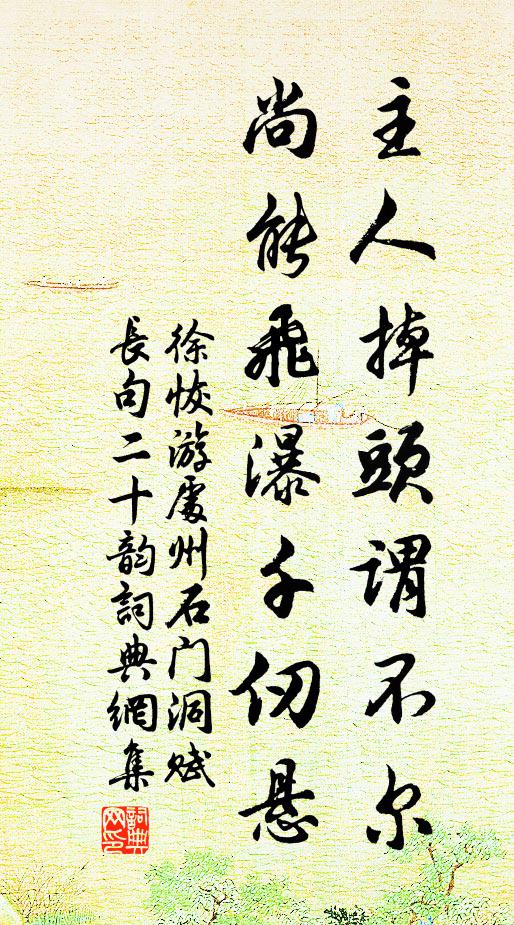 主人掉頭謂不尔
尚能飛瀑千仞懸
徐恢游處州石门洞赋
長句二十韵詞典網集
詞典网印